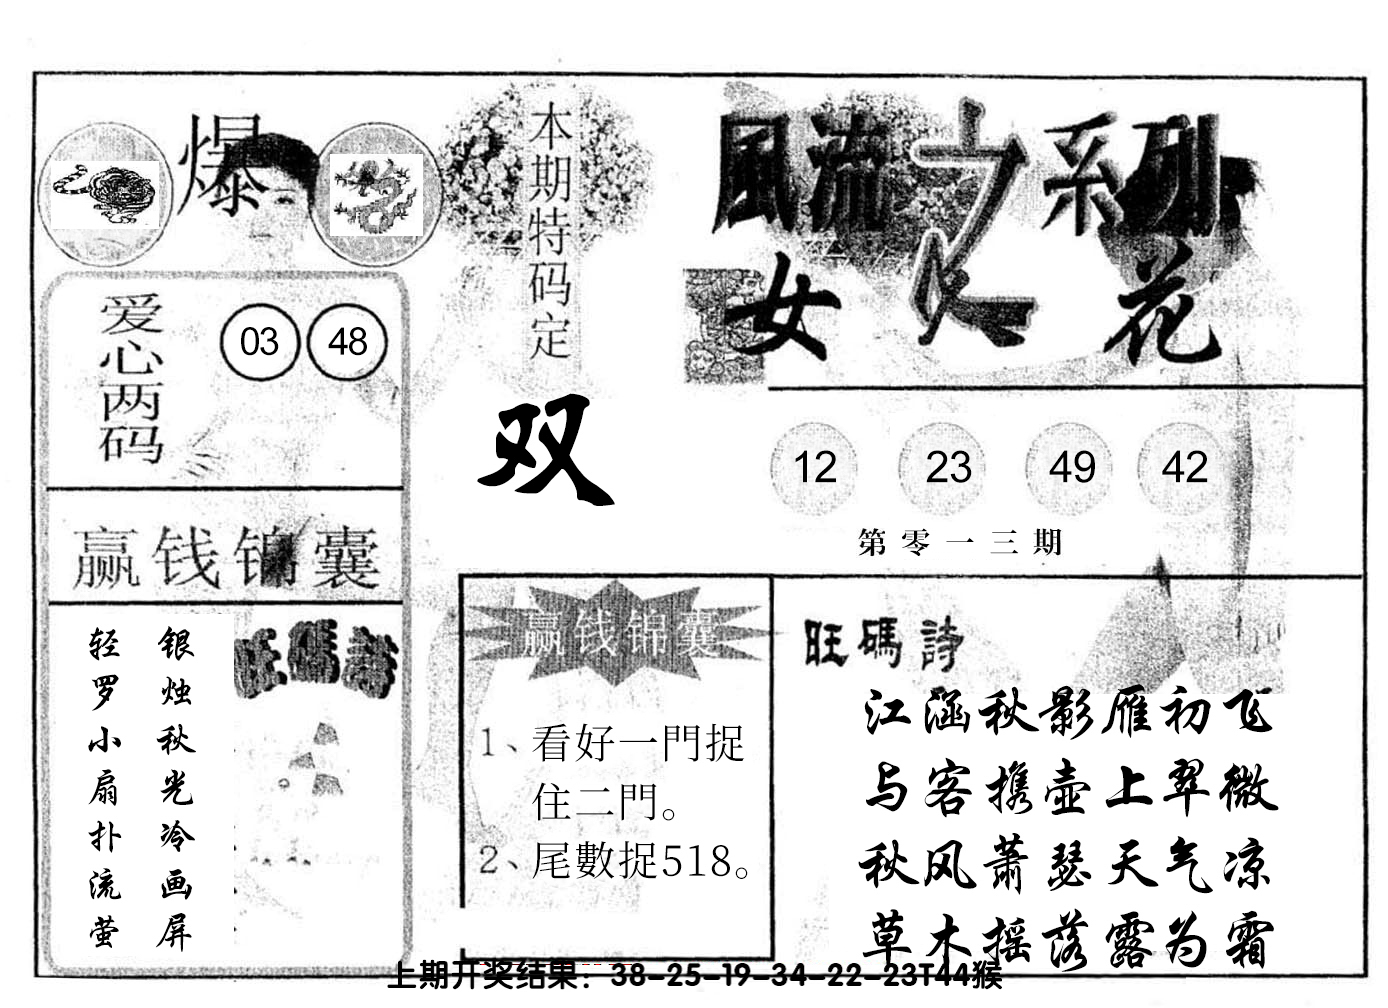 爆
爱心两码
03 48
赢钱锦囊
银烛秋光冷画屏
轻罗小扇扑流萤
旺碼詩
本期特码定
双
風流之系列
女人花
12 23 49 42
第零一三期
赢钱锦囊
1、看好一門捉
住二門。
2、尾數捉518。
旺碼詩
江涵秋影雁初飞
与客携壶上翠微
秋风萧瑟天气凉
草木摇落露为霜
上期开奖结果：38-25-19-34-22-23T44猴